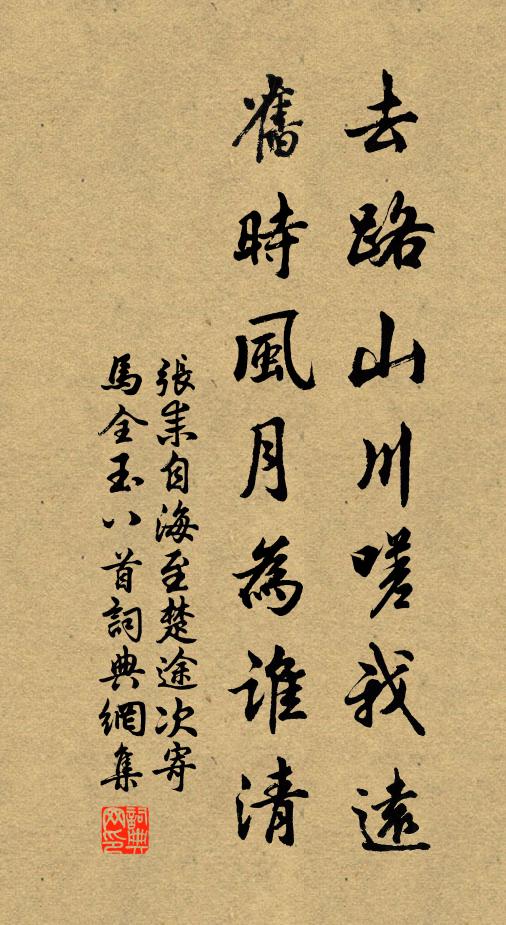 去路山川嗟我遠
舊時風月為誰清
張耒自海至楚途次寄
馬全玉八首詞典網集
詞典網印